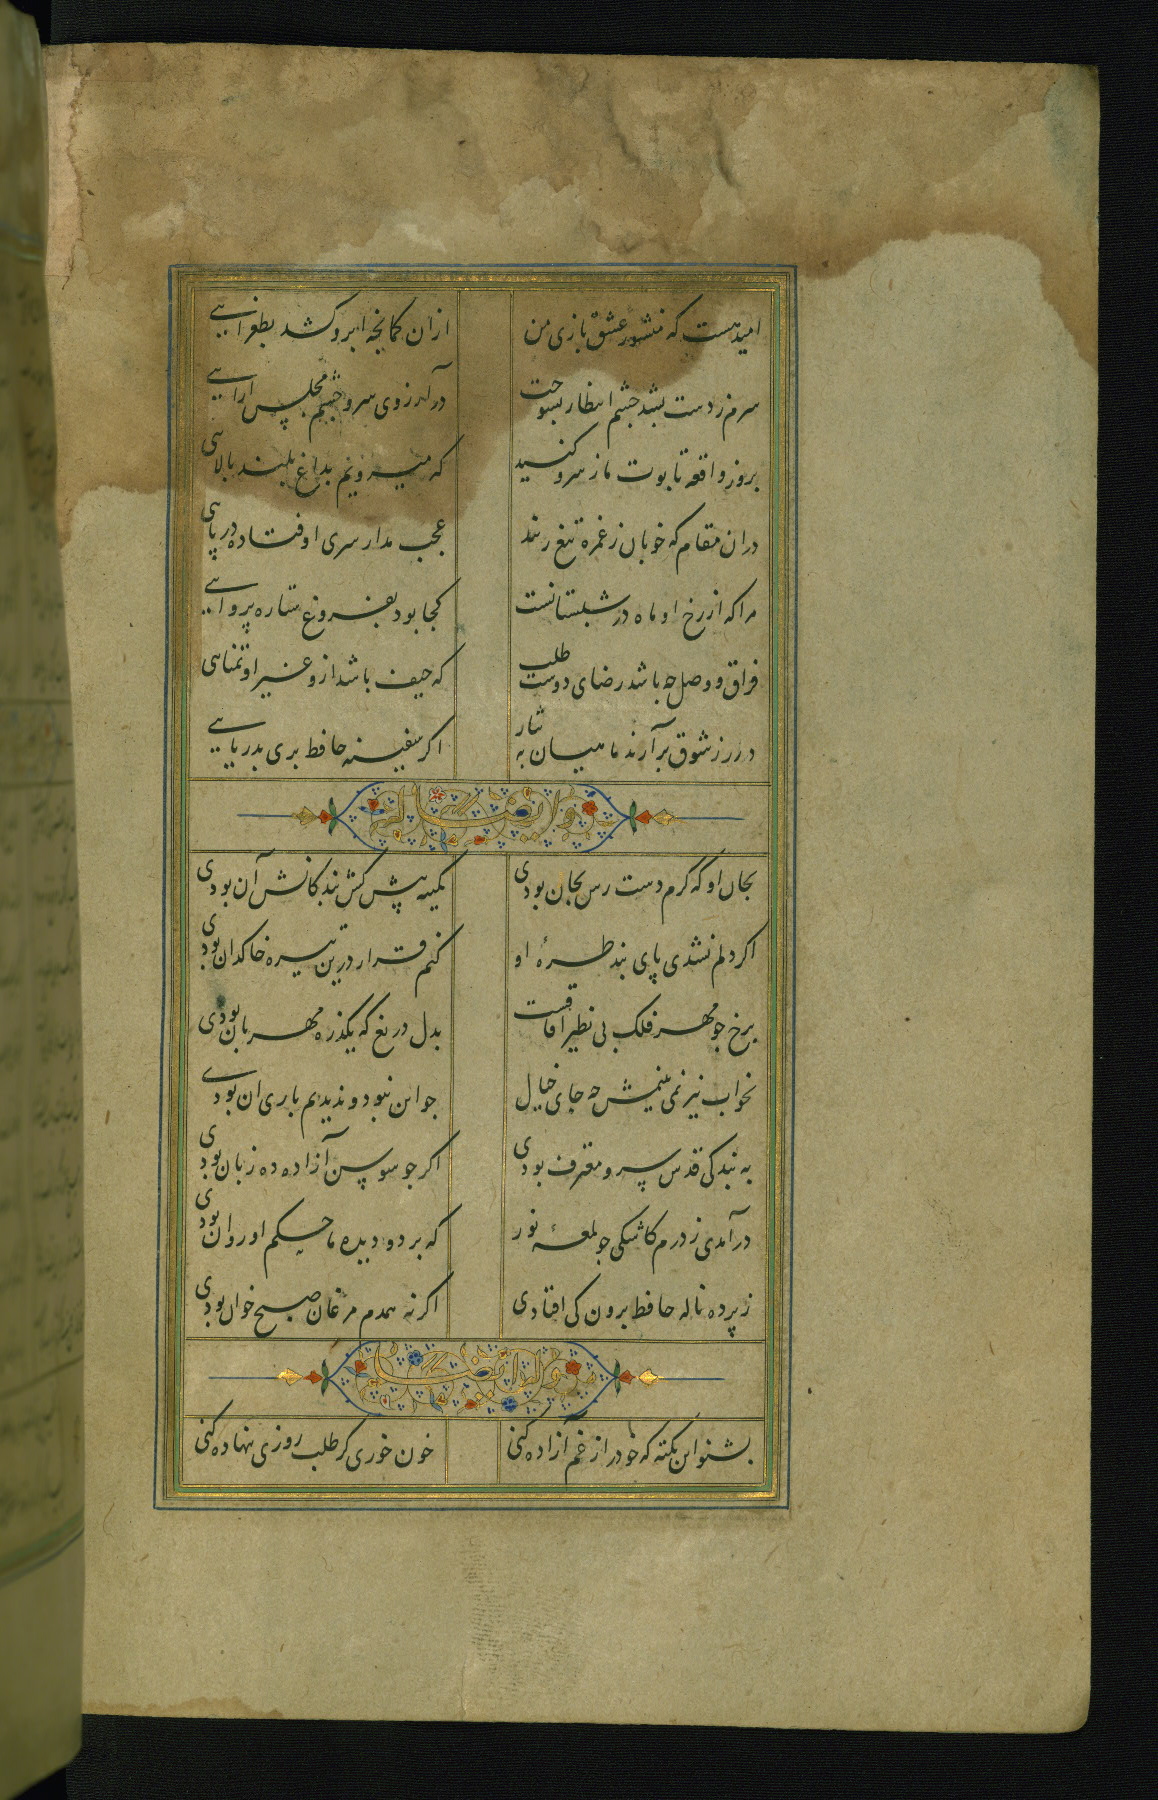 امیدهست که منشور عشق بازی من از ان کمانچه ابرو کشد بطغرایی
سرم ز دست بشد جشم انتظار بسوخت در آرزوی سر و چشم مجلس ارایی
بروز واقعه تابوت ما ز سرو کنید که میرویم بداغ بلند بالایی
دران مقام که خوبان ز غمزه تیغ زنند عجب مدار سری اوفتاده در پایی
مرا که از رخ او ماه در شبستانست کجا بود بفروغ ستاره پروایی
فراق و وصل جه باشد رضای دوست طلب که حیف باشد ازو غیر او تمنایی
درر ز شوق برآرند ماهیان به نثار اکر سفینه حافظ بری بدریایی
و له ایضا
بجان او که کرم دست رس بجان بودی کمینه پیش کش بندکانش آن بودی
اکر دلم نشدی پای بند طرهٔ او کنم قرار درین تیره خاکدان بودی
برخ جو مهر فلک بی نظیر افاقست بدل دریغ که یکذره مهربان بودی
بخواب نیز نمی بینمش جه جای خیال جو این نبود و ندیدیم باری ان بودی
به بندکی قدش سرو معترف بودی اکر جو سوسن آزاده ده زبان بودی
درآمدی ز درم کاشکی جو لمعهٔ نور که بر دو دیده ما حکم او روان بودی
ز پرده ناله حافظ برون کی افتادی اکر نه همدم مرغان صبح خوان بودی
و له ایضا
بشنو این نکته که خود را ز غم آزاده کنی خون خوری کر طلب روزی ننهاده کنی